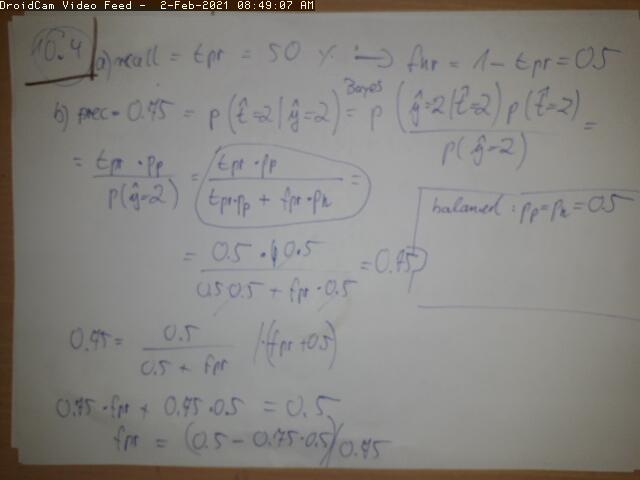 DroidCam Video Feed - 2-Feb-2021 08:49:07 AM
10.4 a) recall = tpr = 50 % → fnr = 1 - tpr = 0.5
b) prec = 0.75 = p(t̂=2|ŷ=2) Bayes = p(ŷ=2|t̂=2) p(t̂=2) / p(ŷ=2) =
= tpr · pp / p(ŷ=2) = tpr · pp / (tpr·pp + fpr·pn) =
balanced : pp = pn = 0.5
= 0.5 · 0.5 / (0.5 0.5 + fpr · 0.5) = 0.75
0.75 = 0.5 / (0.5 + fpr) | · (fpr + 0.5)
0.75 · fpr + 0.75 · 0.5 = 0.5
fpr = (0.5 - 0.75 · 0.5) / 0.75